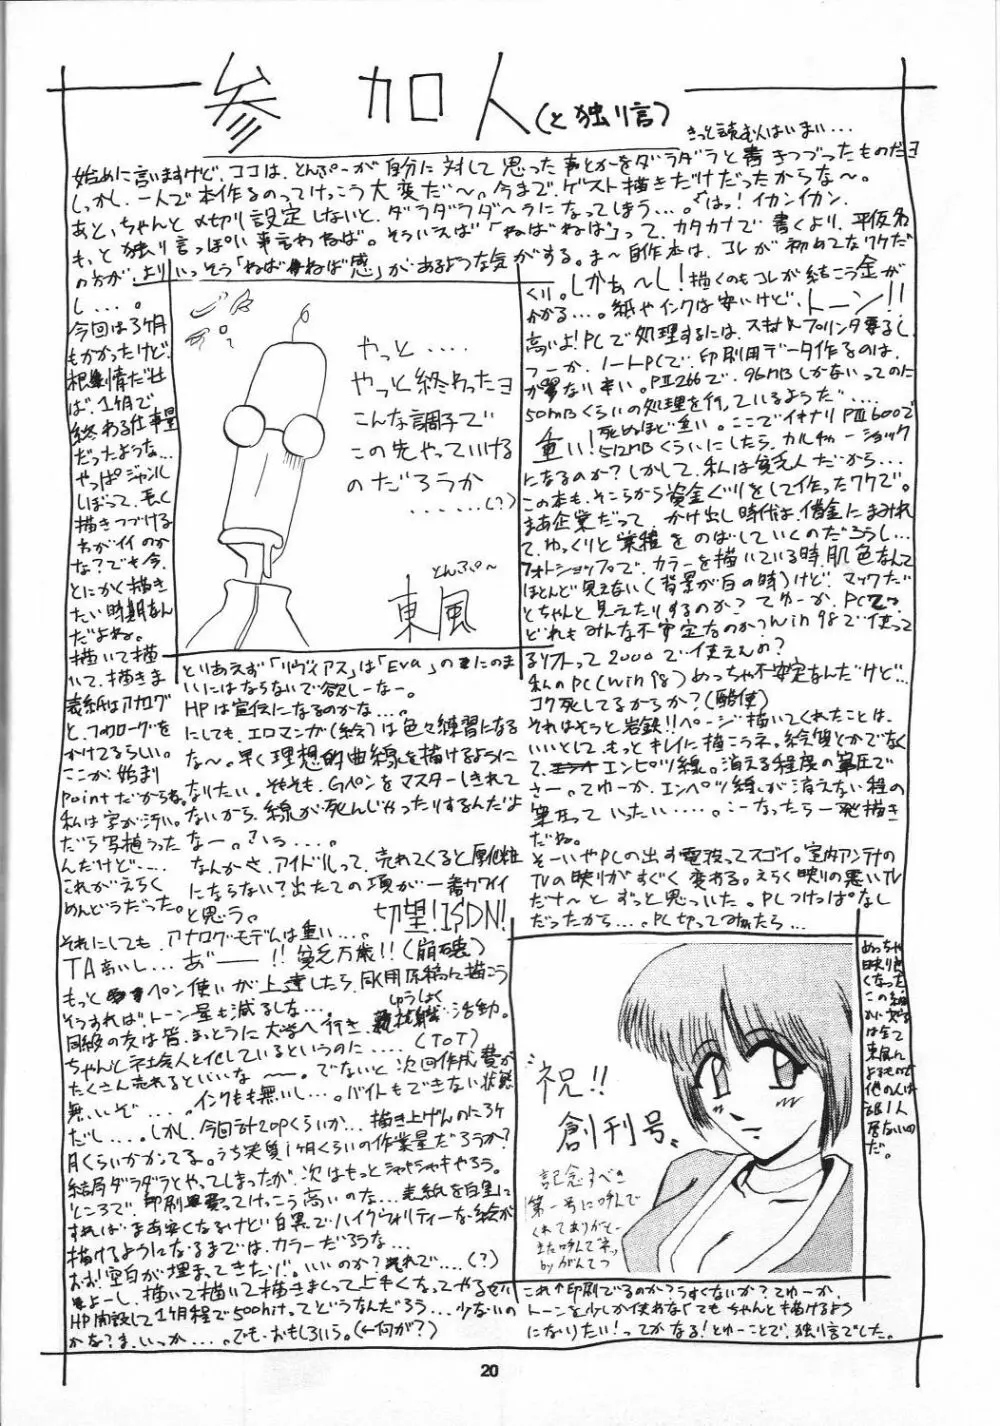 参加人(と独り言)
きっと読む人はいまい...
始めに言いますけど、ココは、とんぷーが自分に対して思った事とかをダラダラと書きつづったものだヨ
しかし、一人で本作るのってけっこう大変だ～。今まで、ゲスト描きだけだったからな～。
あと、ちゃんと〆切り設定しないと、ダラダラダ～ラになってしまう...。はっ！イカンイカン、
もっと独り言っぽい事言わねば。そういえば「ねばねば」って、カタカナで書くより、平仮名
の方が、よりいっそう「ねばねば感」があるような気がする。ま～自作本は、コレが初めてなワケだ
し....。
今回は3ヶ月
もかかったけど、
根性出せ
ば、1ヶ月で
終わる仕事量
だったような...
やっぱジャンル
しぼって、
描きつづける
のがイイのか
な？でも今、
とにかく描き
たい時期なん
だよね。
描いて描
いて、描きま
表紙はアナログ
と、フォトショップを
かけてるらしい。
ここが始まり
pointだからね。
私は字が汚い。
だから写植うった
んだけど....
これがえらく
めんどうだった。
やっと....
やっと終わったヨ
こんな調子で
この先やっていける
のだろうか
......(?)
とんぷ～
東風
くり。しかぁ～し！描くのもコレが結こう金が
かかる...。紙やインクは安いけど、トーン!!
高いよ！PCで処理するには、スキャナ、プリンタ要るし、
つーか、ノートPCで、印刷用データ作るのは、
が異ない辛い。PⅡ266で、96MBしかないってのに
50MBくらいの処理を行っているようだ....
死ぬほど重い。ここでイキナリPⅢ600で
重い！512MBくらいにしたら、カルチャーショック
になるのか？しかして、私は貧乏人だから...
この本も、そこらから資金ぐりをして作ったワケで。
まあ企業だって、かけ出し時代は、借金にまみれ
て、ゆっくりと業積をのばしていくのだろうし...
フォトショップで、カラーを描いている時、肌色なんて
ほとんど見えない(背景が白の時)けど、マックだ
とちゃんと見えたりするのか？てゆーか、PCって
どれもみんな不安定なのか？Win98で使って
るソフトって2000で使えんの？
私のPC(Win98)めっちゃ不安定なんだけど...
コク死してるからか？(酷使)
それはそうと岩鉄!!ページ描いてくれたことは、
いいとして、もっとキレイに描こうネ。絵質とかでなく
て、エンピツ線。消える程度の筆圧で
さー。てゆーか、エンペツ線が消えない程の
筆圧っていったい.....。こーなったら一発描き
だね。
そーいやPCの出す電波ってスゴイ。室内アンテナの
TVの映りがすぐく変わる。えらく映りの悪いTV
だナ～とずっと思っていた。PCつけっぱなし
だったから...。PC切ってみたら...
めっちゃ
映り良
くなった
この
は全て
東風に
よるもので
他の人は
1人
居ないの
だ。
とりあえず「リヴァイアス」は「Eva」の二のま
いにはならないで欲しーなー。
HPは宣伝になるのかな...。
にしても、エロマンガ(絵)は色々練習になる
な～。早く理想的曲線を描けるように
なりたい。そもそも、Gペンをマスターしきれて
ないから、線が死んじゃったりするんだよ
なー。
なんかさ、アイドルって、売れてくると厚化粧
にならない？出たての頃が一番カワイイ
と思う。
切望！ISDN！
それにしても、アナログ・モデムは重い...。
TA高いし...あ゛ーー!!貧乏万歳!!(崩壊)
もっとペン使いが上達したら、同人用原稿に描こう
そうすれば、トーン量も減るしな...
同級の友は皆、まっとうに大学へ行き、
しゅうしょく
活動。
ちゃんと社会人と化しているというのに....(ToT)
たくさん売れるといいな～ー。でないと次回作成費が
無いぞ...。インクも無いし...。バイトもできない状態
だし....。しかし、今回計20Pくらいか...描き上げんのに3ヶ
月くらいかかってる。うち実質1ヶ月くらいの作業量だろうか？
結局ダラダラとやってしまったが、次はもっとシャキシャキやろう。
ところで、印刷ってけっこう高いのな...表紙を白黒に
すればまあ安くなるけど白黒でハイクヴォリティーな絵が
描けるようになるまでは、カラーだろうな...
おお！空白が埋まってきたぞ。いいのか？それで....(?)
よーし、描いて描いて描きまくって上手くなってやるぜい
HP開設して1ヶ月程で500hitってどうなんだろう...少ないの
かな？ま、いっか...。でも・おもしろいう。(←何が？)
祝!!
創刊号、
記念すべき
第一号に呼んで
くれてありがと～
また呼んでネッ
byがんてつ
これ↑印刷でるのか？うすくないか？てゆーか、
トーンを少しか使わなくてもちゃんと描けるよう
になりたい！ってかなる！とゆーことで、独り言でした。
20